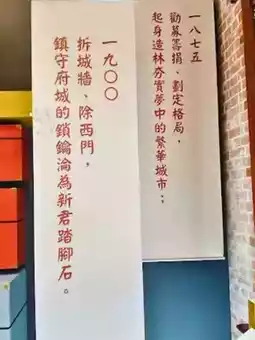 一八七五
勸募籌捐、劃定格局，
起身造林夯實夢中的繁華城市。
一九〇〇
拆城牆、除西門，
鎮守府城的鎖鑰淪為新君踏腳石。